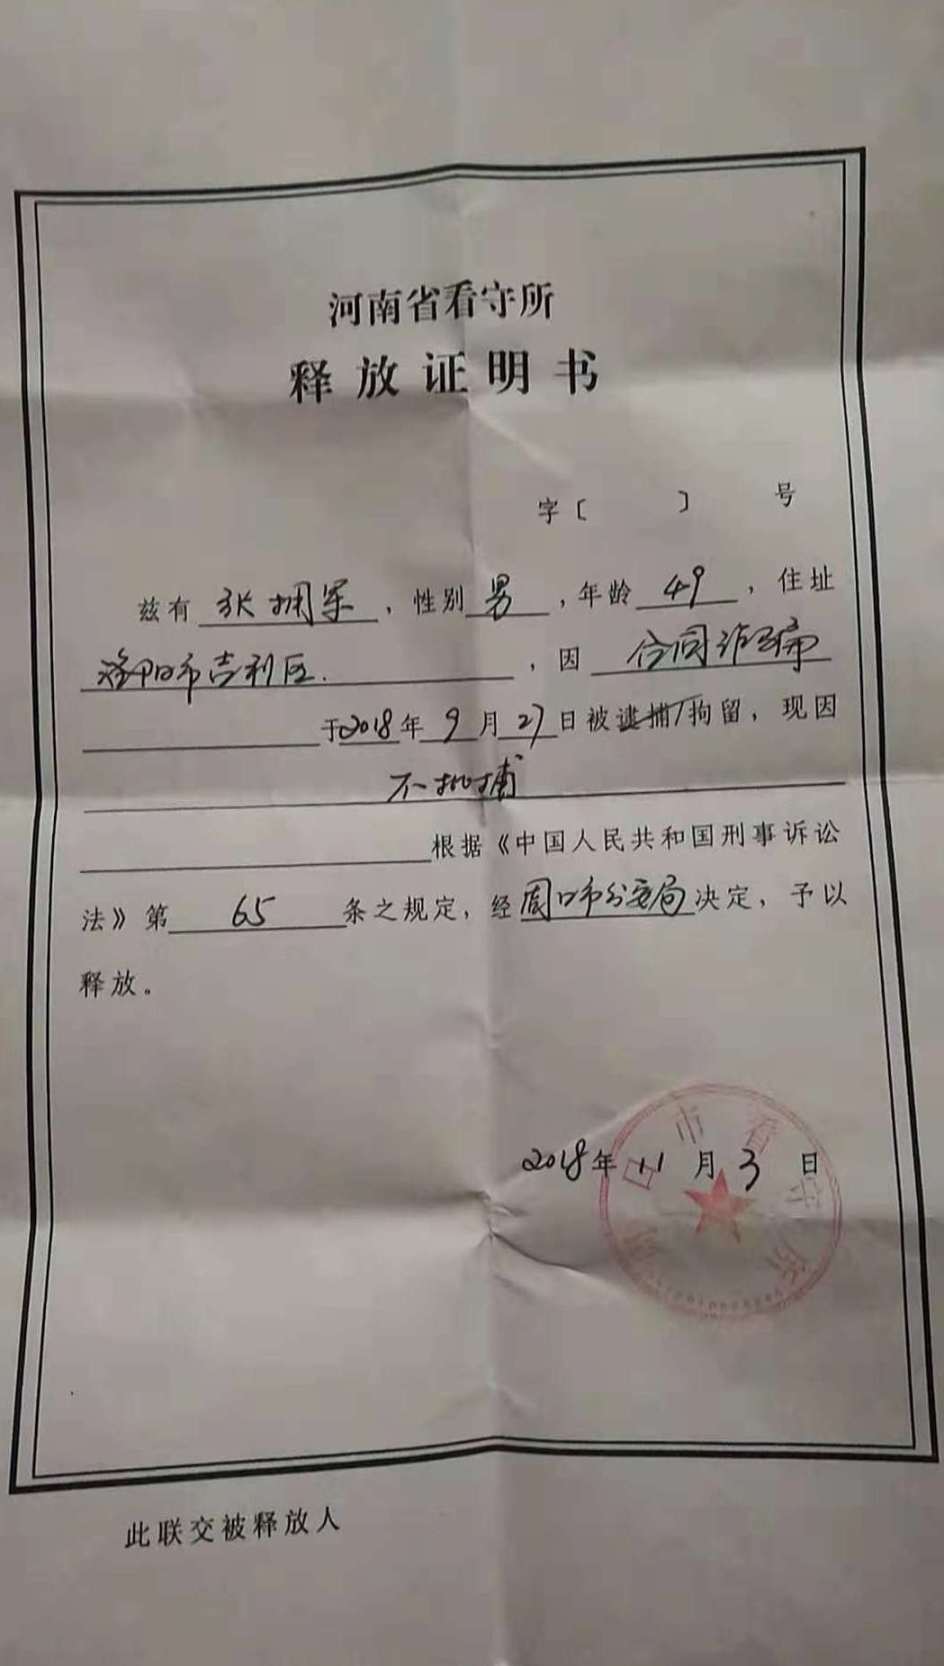 河南省看守所
释放证明书
字〔 〕 号
兹有 张拥军 ，性别 男 ，年龄 49 ，住址
洛阳市吉利区. ，因 合同诈骗
于2018年 9 月 27 日被逮捕/拘留，现因
不批捕
根据《中国人民共和国刑事诉讼
法》第 65 条之规定，经周口市公安局决定，予以
释放。
2018年 11 月 3 日
周口市看守所
此联交被释放人